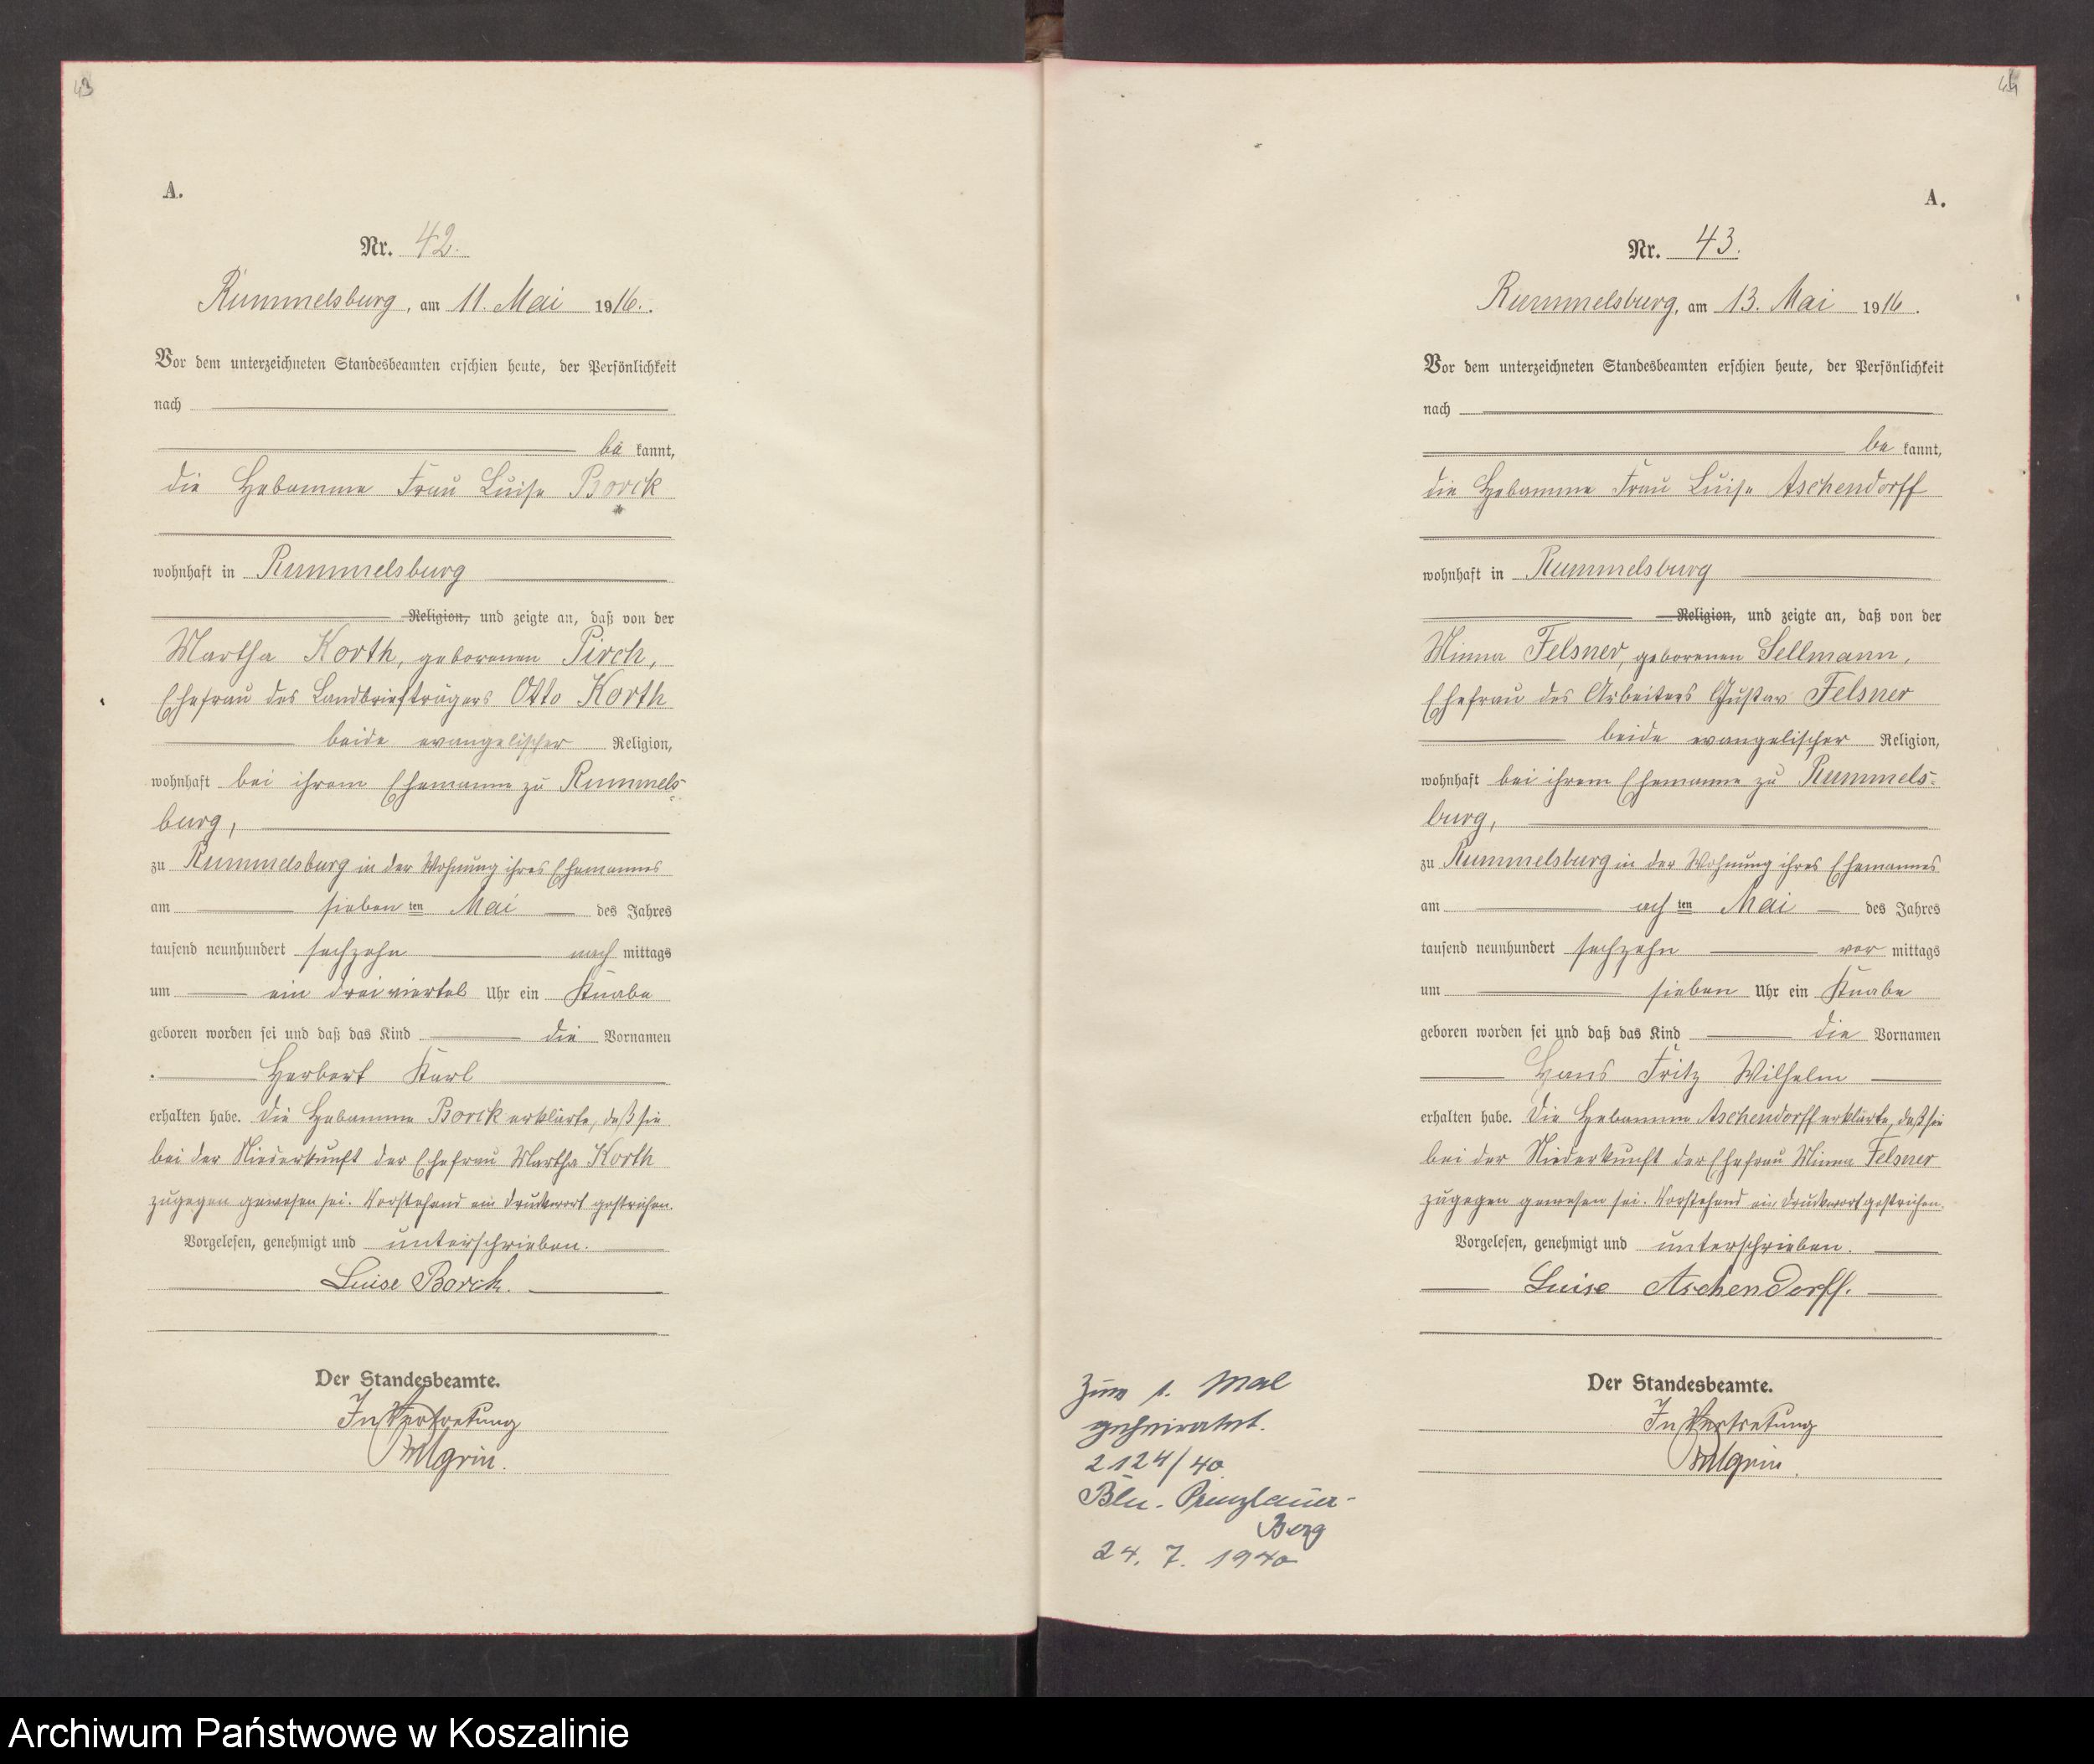 43
A.
Nr. 42.
Rummelsburg, am 11. Mai 1916.
Vor dem unterzeichneten Standesbeamten erschien heute, der Persönlichkeit
nach
be kannt,
die Hebamme Frau Luise Borck
wohnhaft in Rummelsburg
Religion, und zeigte an, daß von der
Martha Korth, geborenen Pirch,
Ehefrau des Landbriefträgers Otto Korth
beide evangelischer Religion,
wohnhaft bei ihrem Ehemanne zu Rummels-
burg,
zu Rummelsburg in der Wohnung ihres Ehemannes
am sieben ten Mai des Jahres
tausend neunhundert sechzehn nach mittags
um ein dreiviertel Uhr ein Knabe
geboren worden sei und daß das Kind die Vornamen
Herbert Karl
erhalten habe. Die Hebamme Borck erklärte, daß sie
bei der Niederkunft der Ehefrau Martha Korth
zugegen gewesen sei. Vorstehend ein Druckwort gestrichen.
Vorgelesen, genehmigt und unterschrieben.
Luise Borck.
Der Standesbeamte.
In Vertretung
44
A.
Nr. 43.
Rummelsburg, am 13. Mai 1916.
Vor dem unterzeichneten Standesbeamten erschien heute, der Persönlichkeit
nach
be kannt,
die Hebamme Frau Luise Aschendorff
wohnhaft in Rummelsburg
Religion, und zeigte an, daß von der
Minna Felsner, geborenen Sellmann,
Ehefrau des Arbeiters Gustav Felsner
beide evangelischer Religion,
wohnhaft bei ihrem Ehemanne zu Rummels-
burg,
zu Rummelsburg in der Wohnung ihres Ehemannes
am ach ten Mai des Jahres
tausend neunhundert sechzehn vor mittags
um sieben Uhr ein Knabe
geboren worden sei und daß das Kind die Vornamen
Hans Fritz Wilhelm
erhalten habe. Die Hebamme Aschendorff erklärte, daß sie
bei der Niederkunft der Ehefrau Minna Felsner
zugegen gewesen sei. Vorstehend ein Druckwort gestrichen.
Vorgelesen, genehmigt und unterschrieben.
Luise Aschendorff.
Der Standesbeamte.
In Vertretung
Zum 1. Mal
geheiratet.
2124/40
Bln. Prenzlauer-
Berg
24. 7. 1940
Archiwum Państwowe w Koszalinie